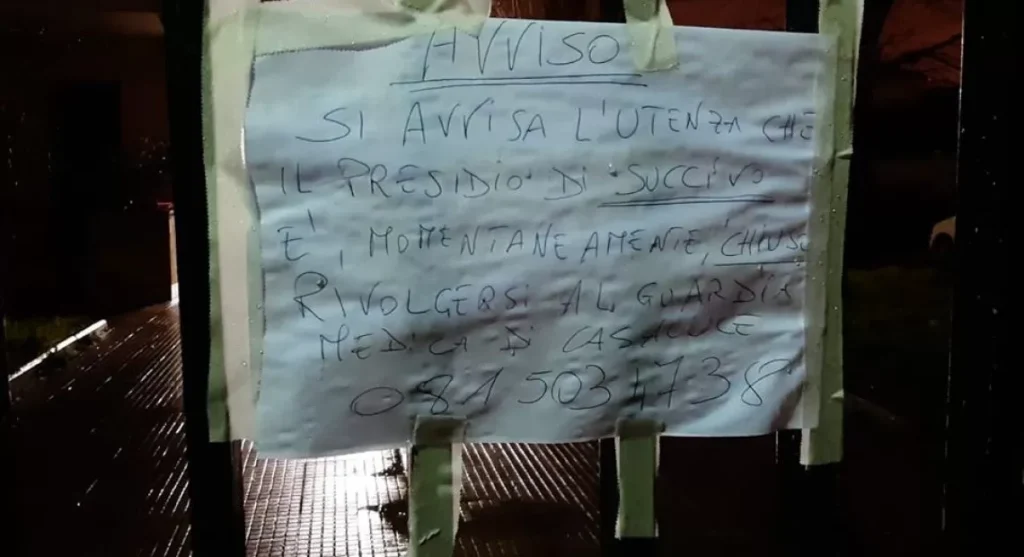 AVVISO
SI AVVISA L'UTENZA CHE
IL PRESIDIO DI SUCCIVO
E', MOMENTANEAMENTE, CHIUSO
RIVOLGERSI AL GUARDIA
MEDICA DI CASALUCE
081 5034738